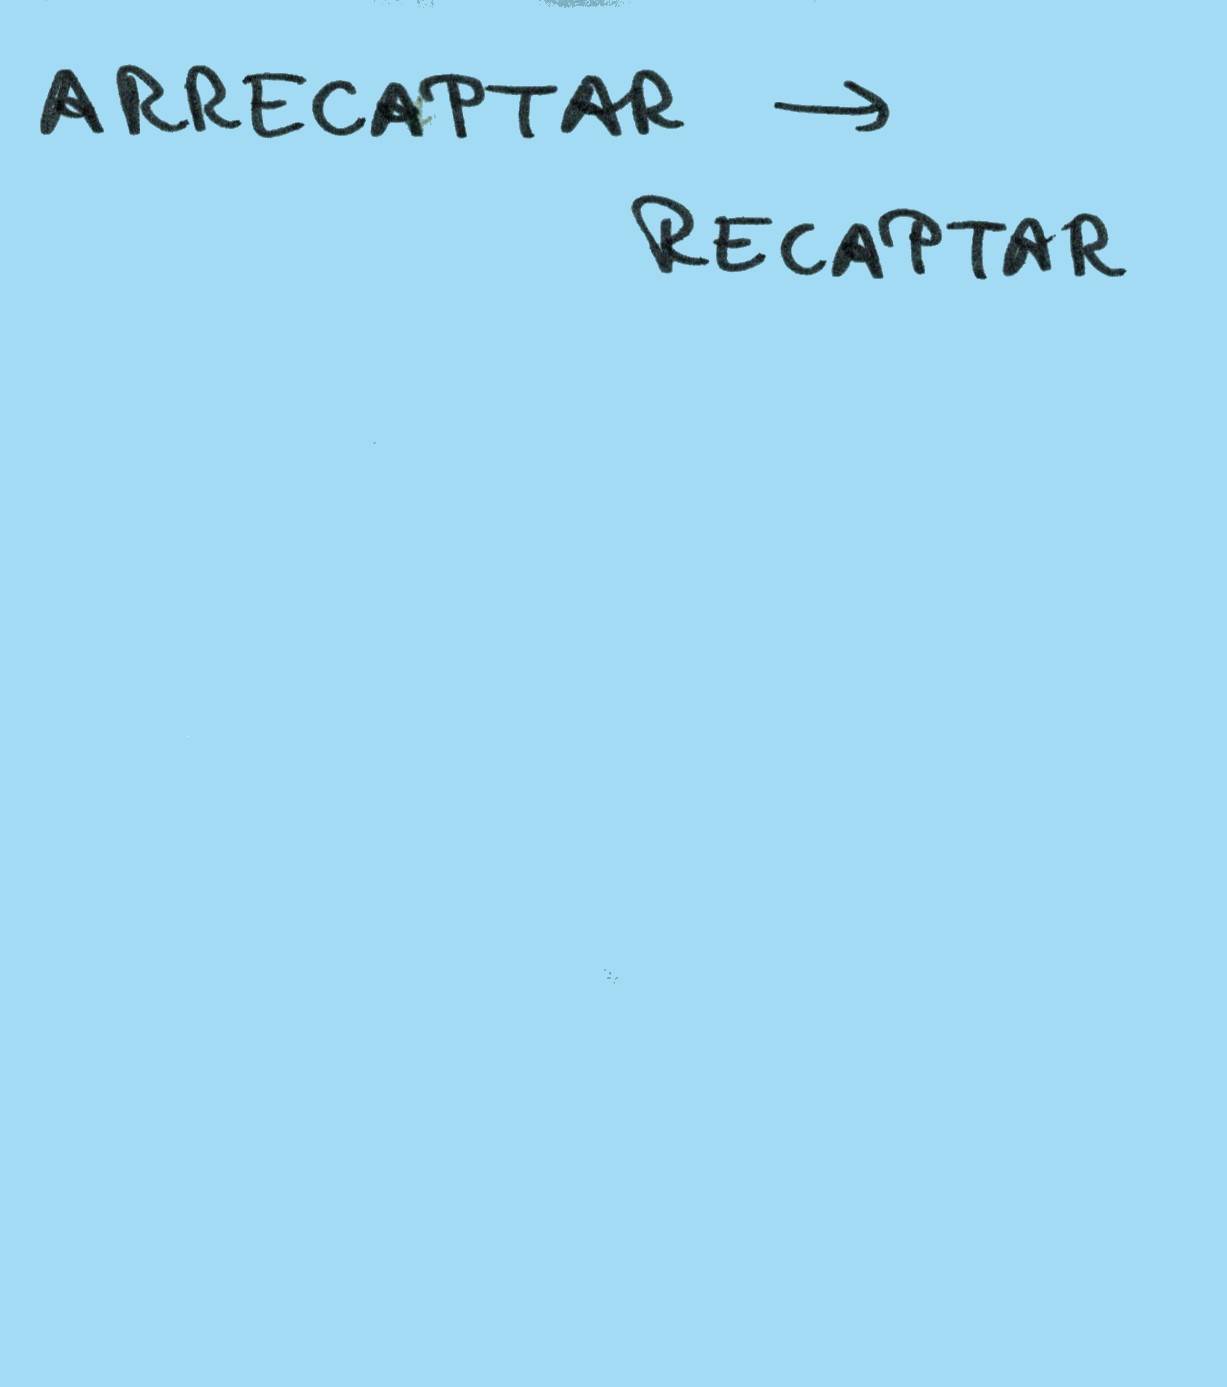 ARRECAPTAR →
RECAPTAR